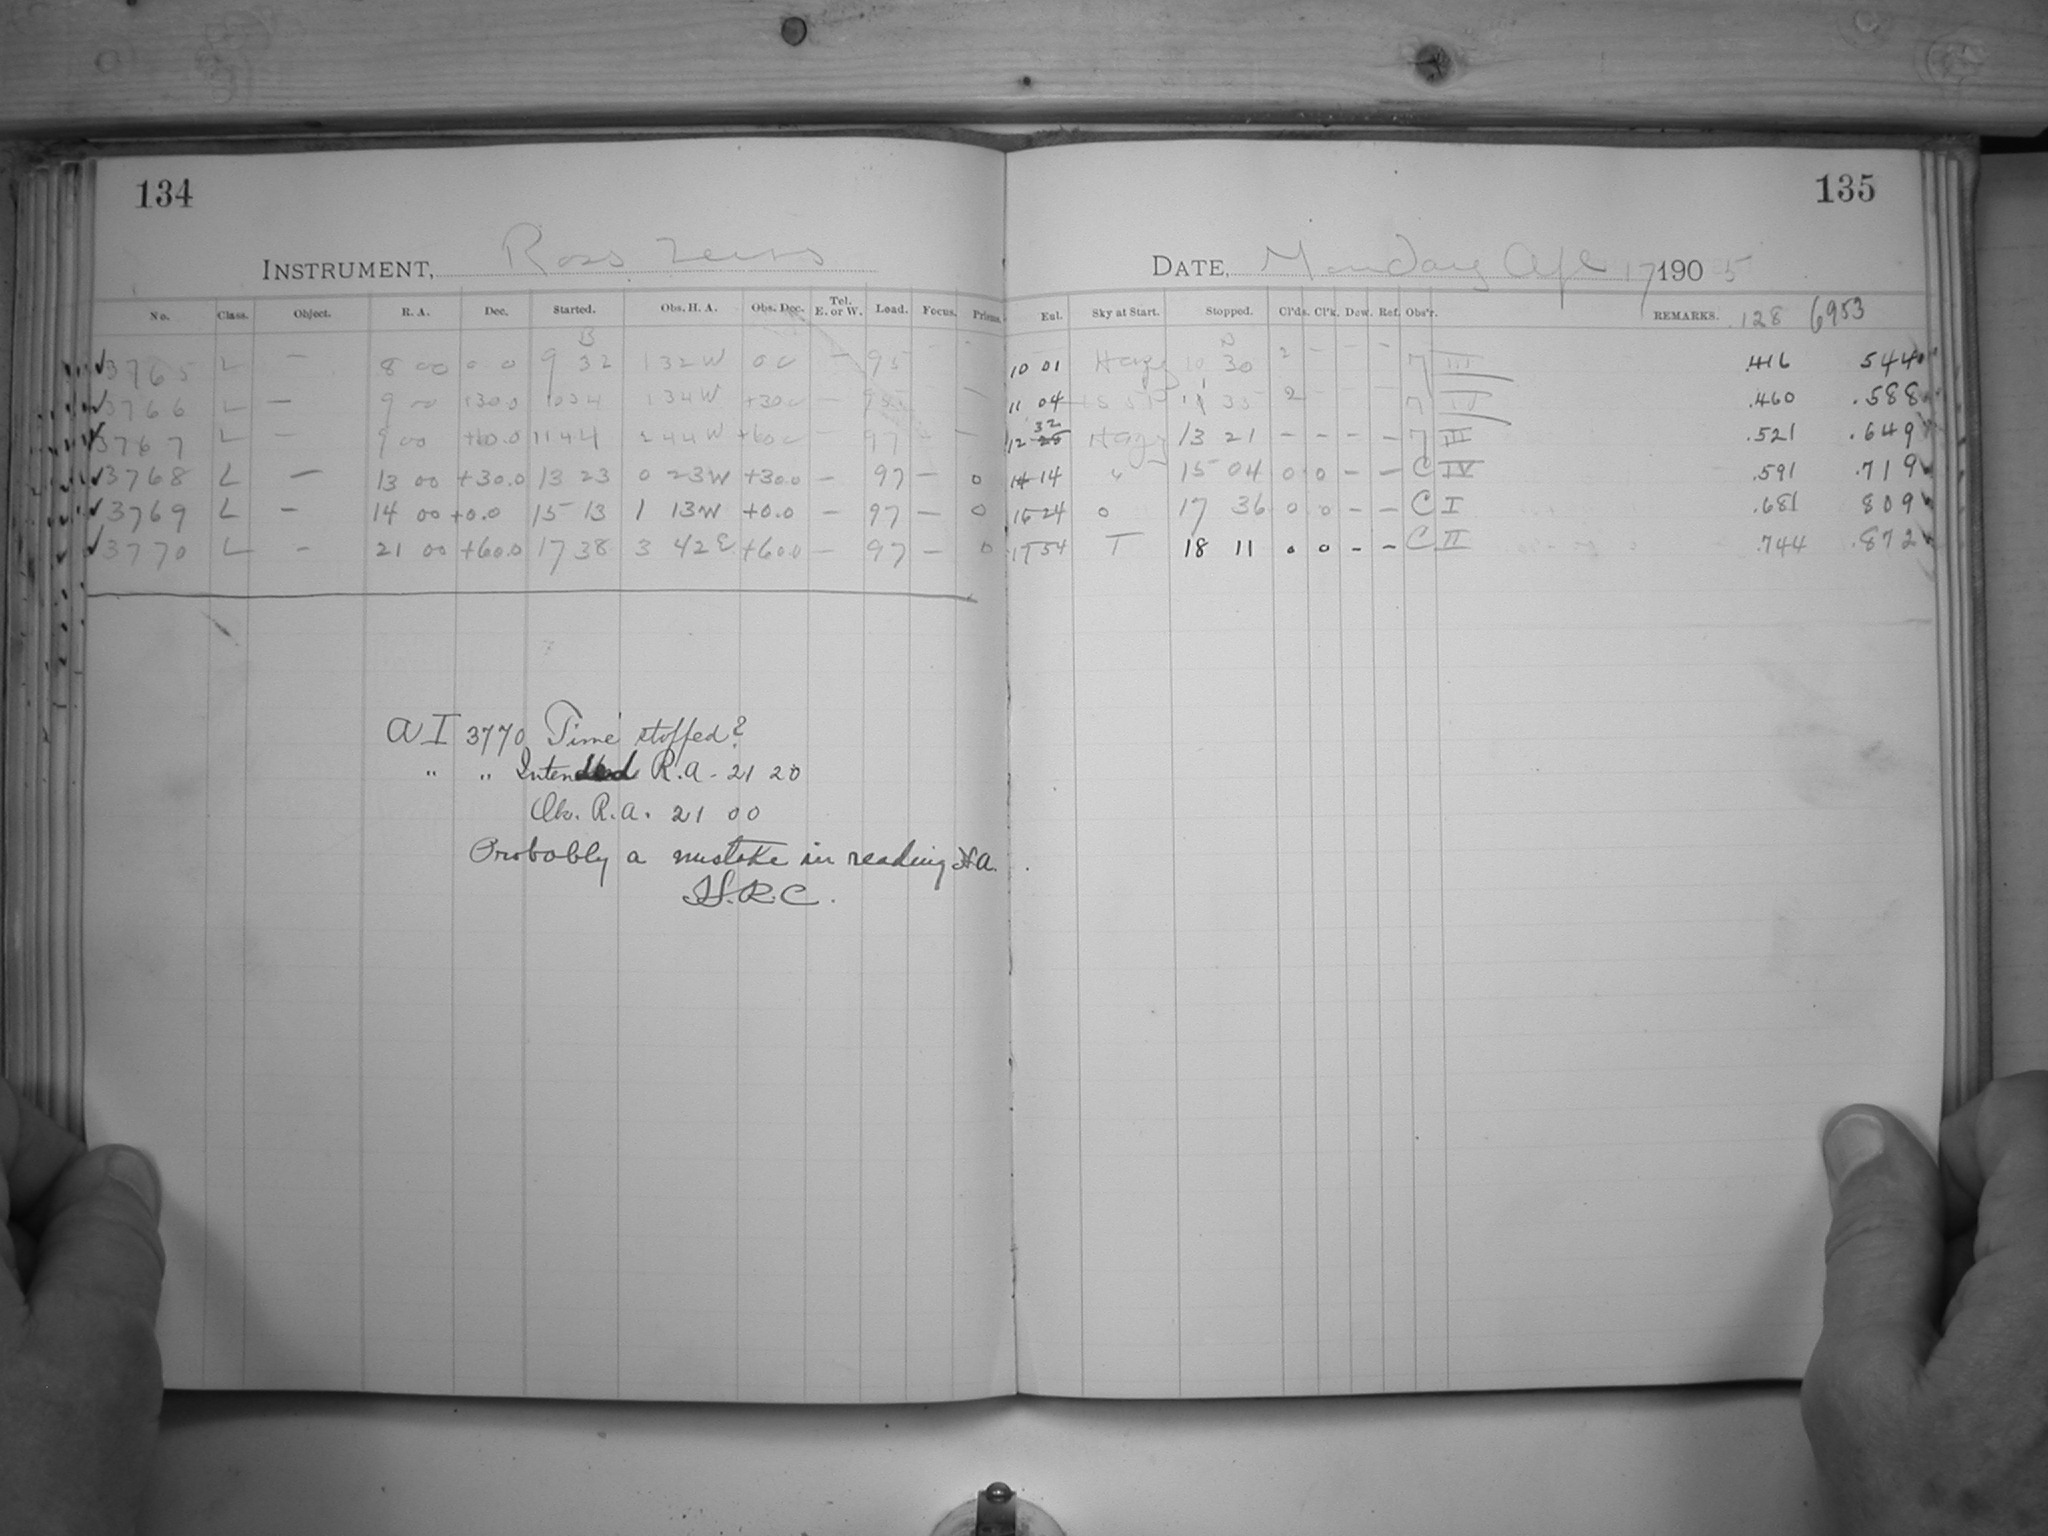 134
135
INSTRUMENT, Ross
DATE, Monday Apl 17 1905
No. Class. Object. R. A. Dec. Started. Obs. H. A. Obs. Dec. Tel. E. or W. Load. Focus. Prisms. Eal. Sky at Start. Stopped. Cl'ds. Cl'k. Dew. Ref. Obs'r. REMARKS. .128 6953
3765 L – 8 00 0 0 9 32 1 32 W 00 – 95 10 01 Hazy 10 30 2 – – – 7 III .416 544
3766 L – 9 00 +30.0 10 34 1 34 W +30.0 – 11 04 11 35 2 7 .460 .588
3767 L – 9 00 +60.0 11 44 2 44 W +60.0 – 97 – 12 28 32 Hazy 13 21 – – – – 7 III .521 .649
3768 L – 13 00 +30.0 13 23 0 23 W +30.0 – 97 – 0 14 14 " 15 04 0 0 – – C IV .591 .719
3769 L – 14 00 +0.0 15 13 1 13 W +0.0 – 97 – 0 16 24 0 17 36 0 0 – – C I .681 809
3770 L – 21 00 +60.0 17 38 3 42 E +60.0 – 97 – 0 17 54 T 18 11 0 0 – – C II .744 .872
A I 3770 Time stopped?
" " Intended R.A. - 21 20
Ob. R.A. 21 00
Probably a mistake in reading H A.
H.R.C.